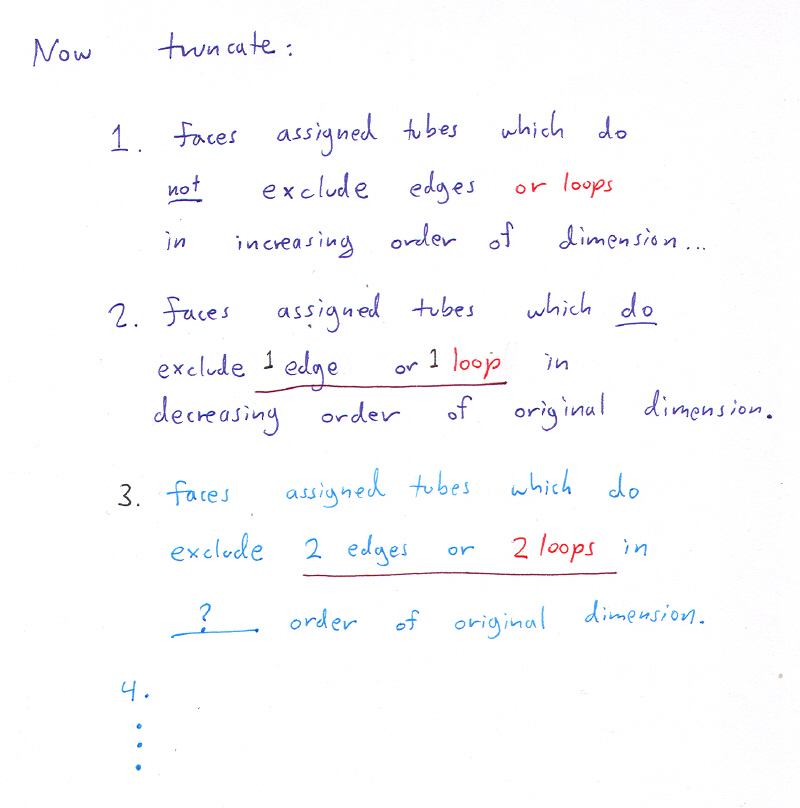 Now truncate:
1. faces assigned tubes which do
not exclude edges or loops
in increasing order of dimension...
2. faces assigned tubes which do
exclude 1 edge or 1 loop in
decreasing order of original dimension.
3. faces assigned tubes which do
exclude 2 edges or 2 loops in
? order of original dimension.
4.
⋮